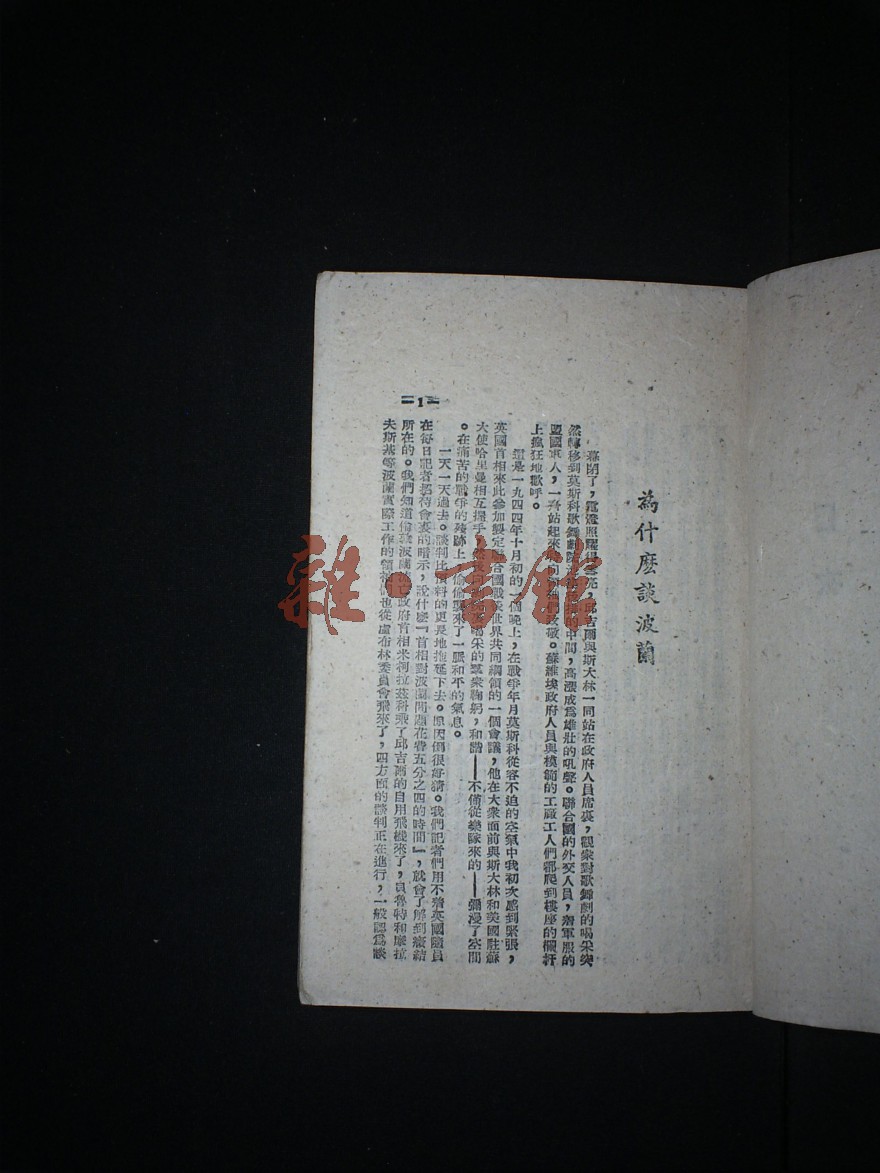 為什麽談波蘭
幕閉了,電燈照耀得 亮,邱吉爾與斯大林一同站在政府人員席裏,觀衆對歌舞劇的喝采突
然轉移到莫斯科歌舞劇院 的中間,高漲成爲雄壯的吼聲。聯合國的外交人員,着軍服的
盟國軍人,一齊站起來 向 們致敬。蘇維埃政府人員與模範的工廠工人們都爬到樓座的欄杆
上瘋狂地歡呼。
這是一九四四年十月初的一個晚上,在戰爭年月莫斯科從容不迫的空氣中我初次感到緊張,
英國首相來此參加製定聯合國戰後世界共同綱領的一個會議,他在大衆面前與斯大林和美國駐蘇
大使哈里曼相互握手, 喝采的羣衆鞠躬,和諧——不僅從樂隊來的——彌漫了空間
。在痛苦的戰爭的殘跡上,偷偷襲來了一股和平的氣息。
一天一天過去。談判比預料的更長地拖延下去。原因倒很好猜。我們記者們用不着英國隨員
在每日記者招待會裏的暗示,說什麽『首相對波蘭問題花費五分之四的時間』,就會了解到癥結
所在的。我們知道倫敦波蘭流亡政府首相米柯拉茲科乘了邱吉爾的自用飛機來了,貝魯特和摩拉
夫斯基等波蘭實際工作的領袖們也從盧布林委員會飛來了,四方面的談判正在進行,一般認爲談
=1=
雜·書館